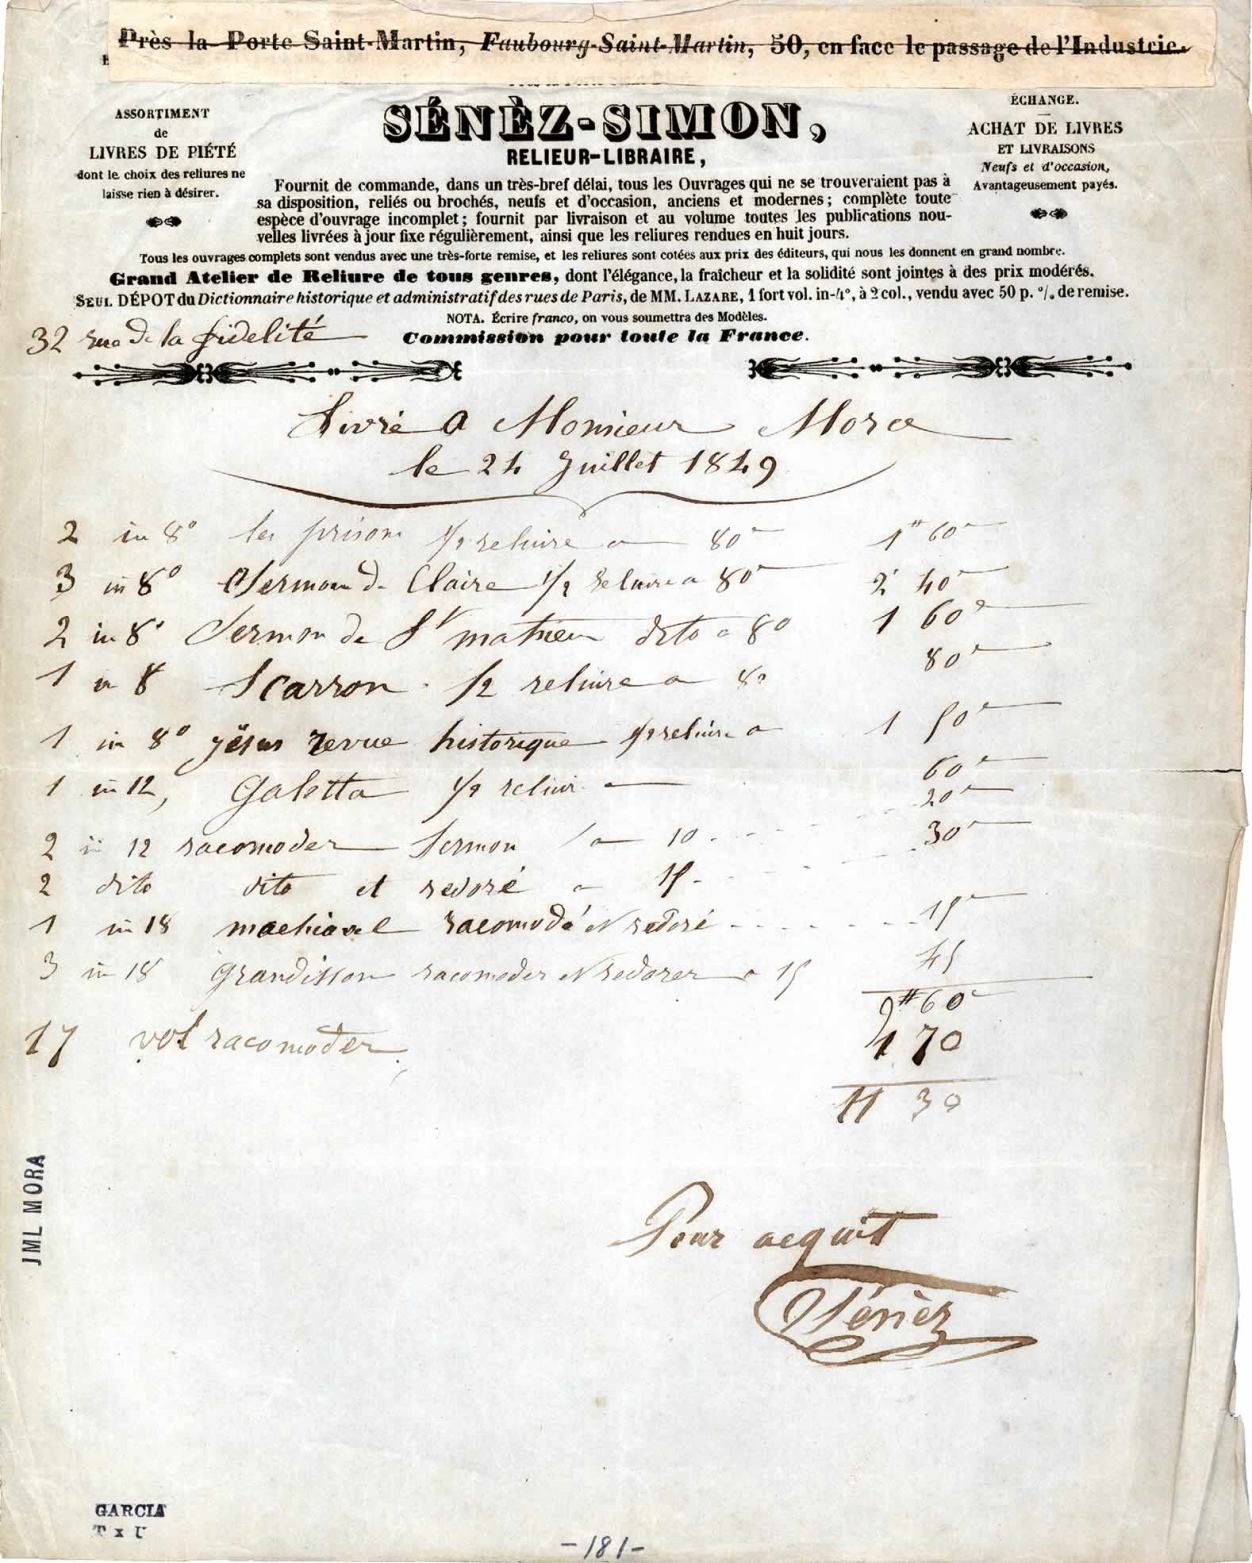 Près la Porte Saint-Martin, Faubourg-Saint-Martin, 50, en face le passage de l'Industrie.
ASSORTIMENT
de
LIVRES DE PIÉTÉ
dont le choix des reliures ne
laisse rien à désirer.
SÉNÈZ-SIMON,
RELIEUR-LIBRAIRE,
Fournit de commande, dans un très-bref délai, tous les Ouvrages qui ne se trouveraient pas à
sa disposition, reliés ou brochés, neufs et d'occasion, anciens et modernes; complète toute
espèce d'ouvrage incomplet; fournit par livraison et au volume toutes les publications nou-
velles livrées à jour fixe régulièrement, ainsi que les reliures rendues en huit jours.
ÉCHANGE.
ACHAT DE LIVRES
ET LIVRAISONS
Neufs et d'occasion,
Avantageusement payés.
Tous les ouvrages complets sont vendus avec une très-forte remise, et les reliures sont cotées aux prix des éditeurs, qui nous les donnent en grand nombre.
Grand Atelier de Reliure de tous genres, dont l'élégance, la fraîcheur et la solidité sont jointes à des prix modérés.
SEUL DÉPOT du Dictionnaire historique et administratif des rues de Paris, de MM. LAZARE, 1 fort vol. in-4°, à 2 col., vendu avec 50 p. % de remise.
NOTA. Écrire franco, on vous soumettra des Modèles.
32 rue de la fidelité
Commission pour toute la France.
Livré a Monsieur Mora
le 24 Juillet 1849
2 in 8° les prisons 1/2 reliure a 80c 1# 60c
3 in 8° Sermon de Claire 1/2 reliure a 80c 2 40c
2 in 8° Sermon de St mathieu dito a 80 1 60c
1 in 8 Scarron 1/2 reliure a 80 80c
1 in 8° yésus revue historique 1/2 reliure a 1 50c
1 in 12, Galetta 1/2 reliur 60c
2 in 12 racomoder Sermon a 10 20c
2 dito dito et redoré a 15 30c
1 in 18 machiavel racomodé et redoré 15c
3 in 18 Grandisson racomoder et redorer a 15 45
9# 60c
17 vol racomoder 1 70
11 30
Pour acquit
Sénèz
JML MORA
GARCIA
T x U
-181-